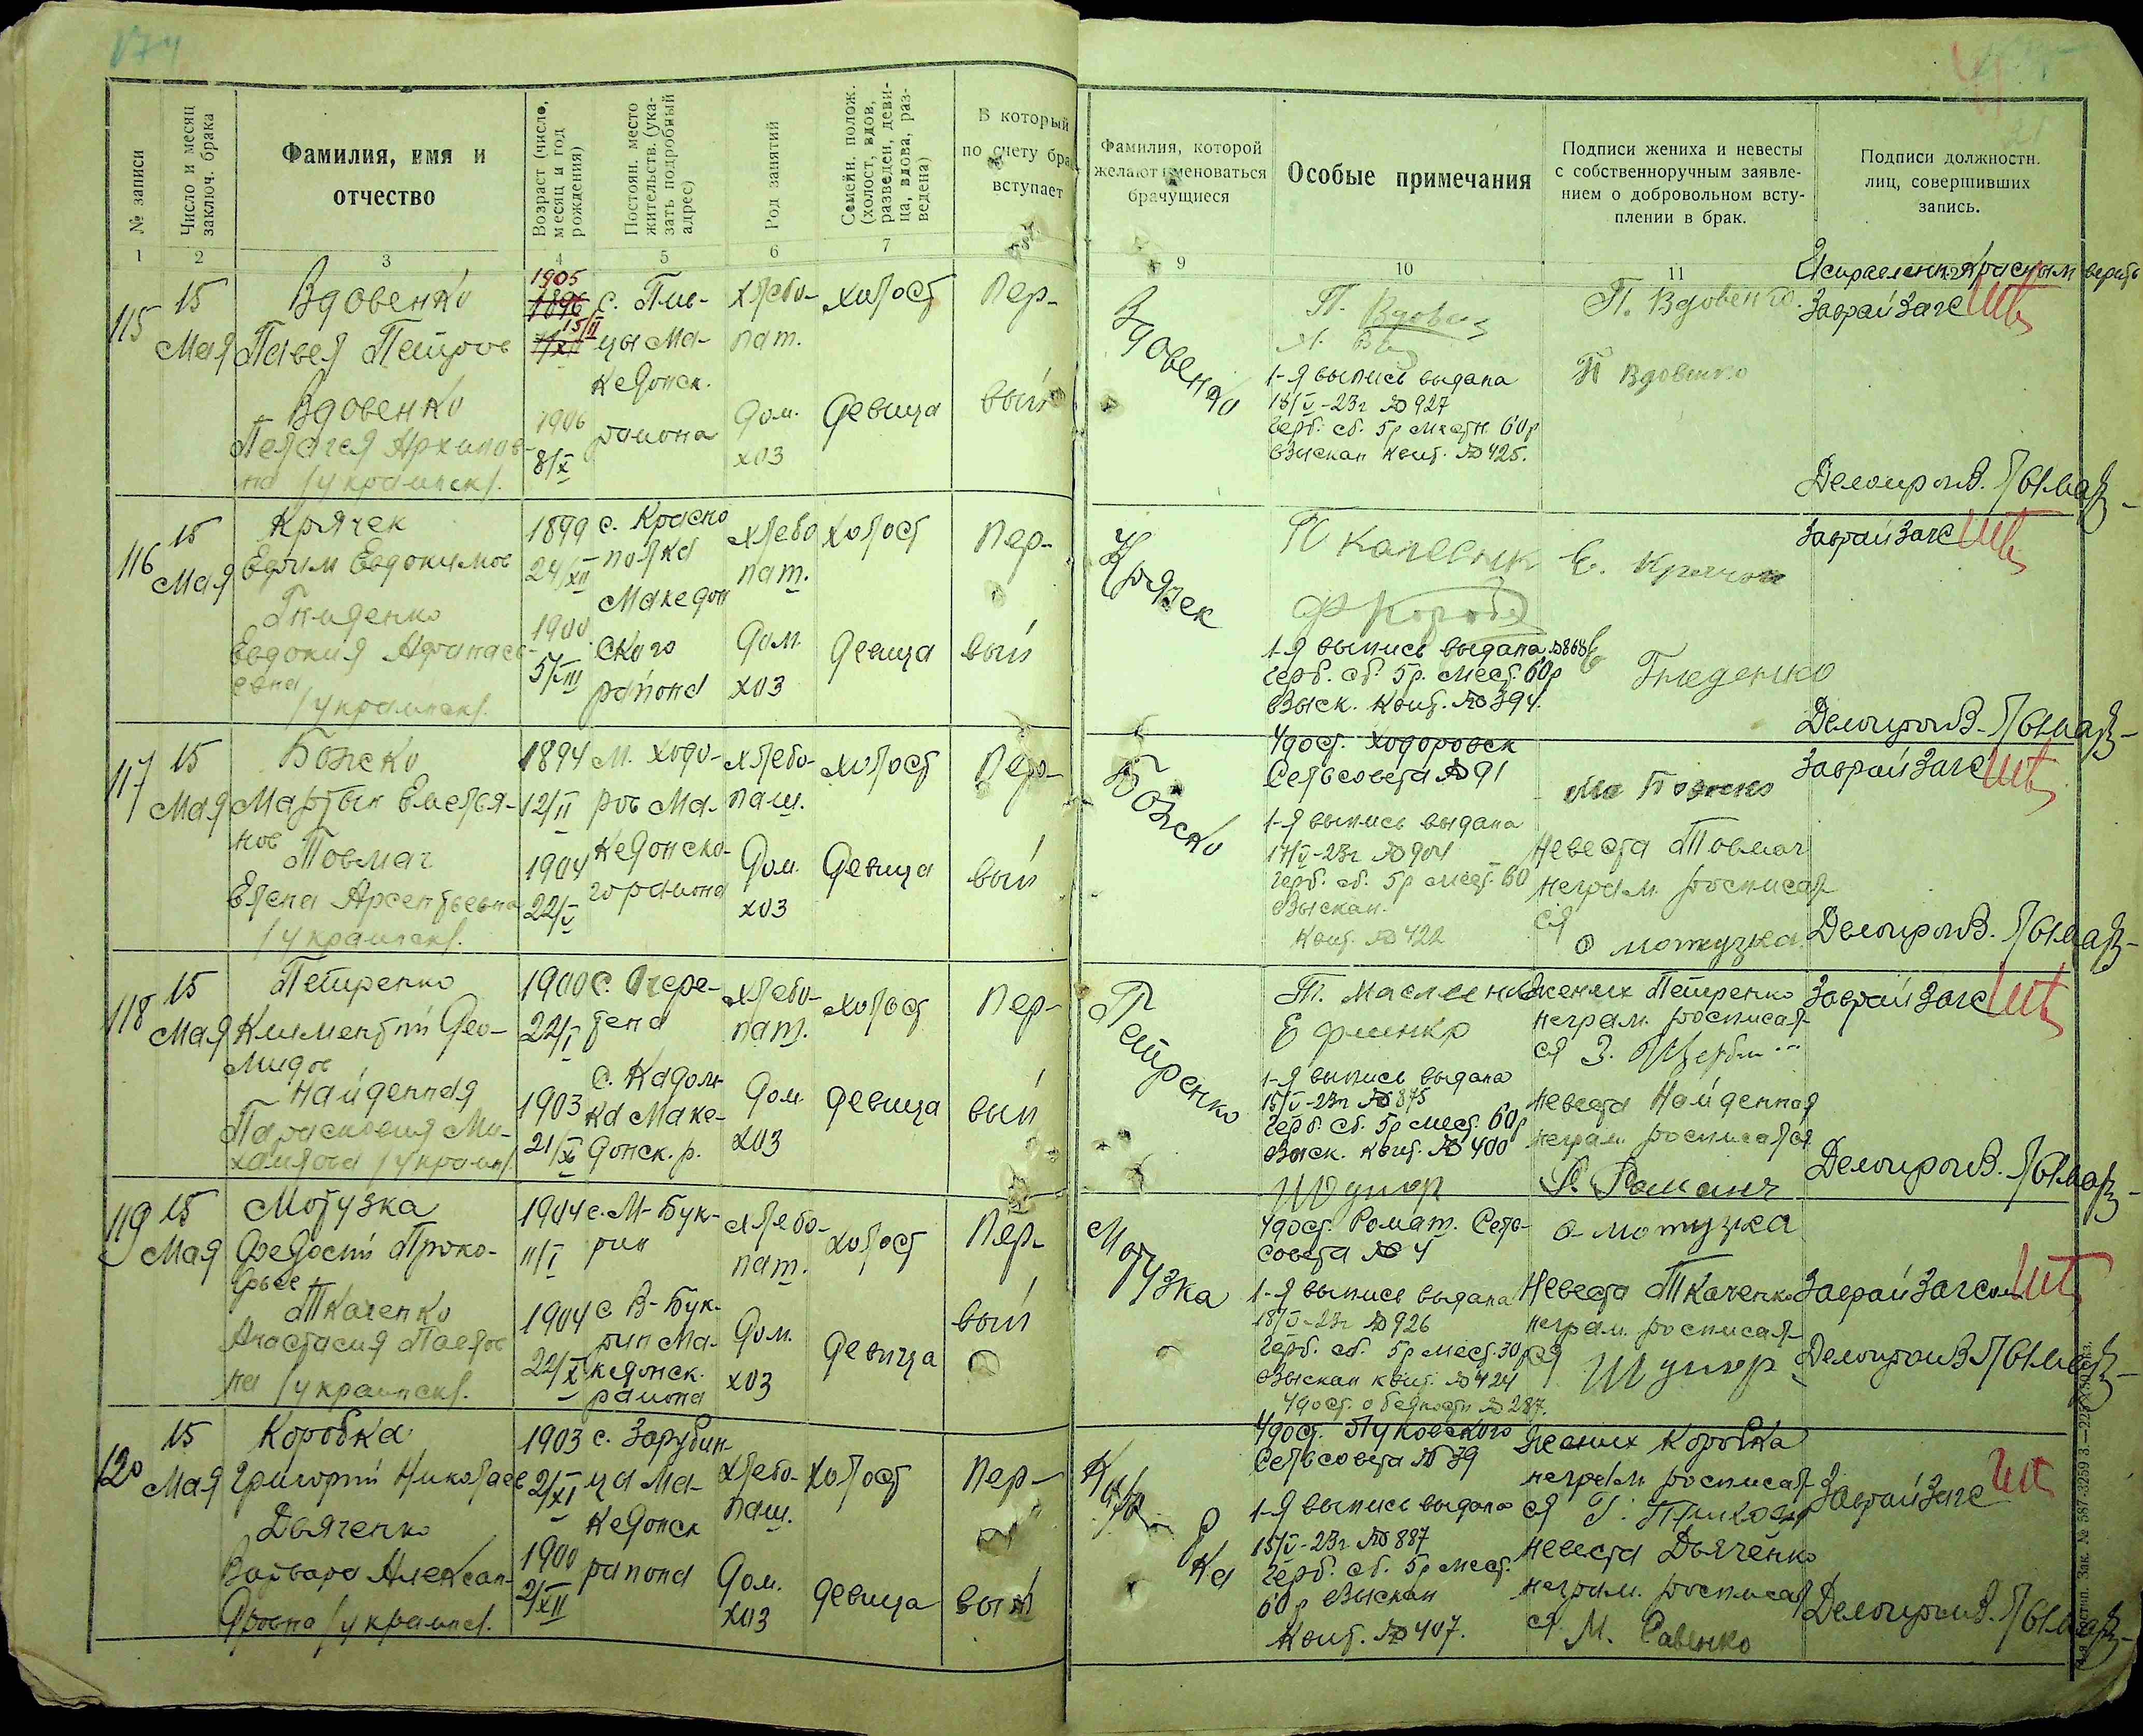 174
№ записи
Число и месяц заключ. брака
Фамилия, имя и
отчество
Возраст (число, месяц и год рождения)
Постоян. место жительств. (указать подробный адрес)
Род занятий
Семейн. полож. (холост, вдов, разведен, девица, вдова, разведена)
В который
по счету бра
вступает
1
2
3
4
5
6
7
115
15
Мая
Вдовенко
Павел Петров
Вдовенко
Пелагея Архипов-
на /украинск/.
1905
1896
15/II
1906
8/X
с. Пие-
цы Ма-
кедонск.
района
хлебо-
паш.
Дом.
хоз
холост
девица
Пер-
вый
116
15
Мая
Крячек
Ефим Евдокимов
Гниденко
Евдокия Афанась-
евна
/украинск/.
1899
24/XII
1900
5/VIII
с. Красно
полка
Македон
ского
района
хлебо
паш.
Дом.
хоз
холост
девица
Пер-
вый
117
15
Мая
Божко
Мартын Емелья-
нов
Товмач
Елена Арсентьевна
/украинск/.
1894
12/II
1904
22/V
м. Ходо-
ров Ма-
кедонско-
го района
хлебо-
паш.
Дом.
хоз
холост
девица
Пер-
вый
118
15
Мая
Петренко
Климентий Део-
мидов
Найденная
Парасковия Ми-
хайлова /украин/.
1900
22/I
1903
21/X
с. Очере-
тена
с. Кадом-
ка Маке-
донск. р.
хлебо-
паш.
Дом
хоз
холост
девица
Пер-
вый
119
15
Мая
Мотузка
Федосий Проко-
фьев
Ткаченко
Анастасия Павлов
на /украинск/.
1904
11/I
1904
22/X
с. М-Бук-
рин
с В-Бук-
рин Ма-
кедонск.
района
хлебо-
паш.
Дом.
хоз
холост
девица
Пер-
вый
120
15
Мая
Коробка
Григорий Николаев
Дьяченко
Варвара Алексан-
дровна /украинс/.
1903
2/XI
1900
2/XII
с. Зарубин-
ца Ма-
кедонск
района
хлебо-
паш.
Дом.
хоз
холост
девица
Пер-
вый
Фамилия, которой
желают именоваться
брачущиеся
Особые примечания
Подписи жениха и невесты
с собственноручным заявле-
нием о добровольном всту-
плении в брак.
Подписи должностн.
лиц, совершивших
запись.
9
10
11
Вдовенко
1-я выпись выдана
18/V-23г № 927
герб. сб. 5р местн. 60р
взыскан квит. № 425.
П. Вдовенко.
П Вдовенко
Исправлен. красным верить
Заврайзагс
Делопроизв.
Крячек
1-я выпись выдана №868
герб. сб. 5р. мест. 60р
взыск. квит. № 394.
Е. Крячок
Е Гниденко
Заврайзагс
Делопроизв.
Божко
Удост. Ходоровск
Сельсовета № 91
1-я выпись выдана
17/V-23г № 904
герб. сб. 5р мест. 60
взыскан.
квит. № 422
Ма Божко
Невеста Товмач
неграм. росписал
ся
О мотузка.
Заврайзагс
Делопроизв.
Петренко
1-я выпись выдана
15/V-23г № 875
герб. сб. 5р мест. 60р
взыск. квит. № 400
Жених Петренко
неграм. росписал-
ся З.
Невеста Найденная
неграм. росписался
Заврайзагс
Делопроизв.
Мотузка
Удост. Ромаш. Сель-
совета № 4
1-я выпись выдана
18/V-23г № 926
герб. сб. 5р мест. 30р
взыскан квит. № 424
Удост. о бедности № 287.
О-мотузка
Невеста Ткаченко
неграм. росписал-
ся
Заврайзагсом
Делопроизв
Коробка
Удост. Луковского
Сельсовета № 39
1-я выпись выдана
15/V-23г № 887
герб. сб. 5р мест.
60р взыскан
Квит. № 407.
Жених Коробка
неграм росписал-
ся Г.
Невеста Дьяченко
неграм. росписал
ся М. Савенко
Заврайзагс
Делопроизв.